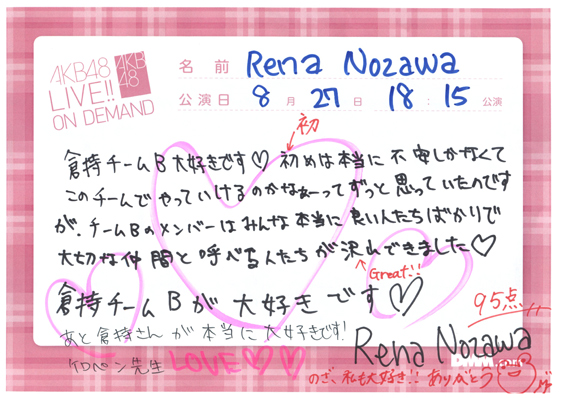 AKB48
LIVE!!
ON DEMAND
AKB
48
名前 Rena Nozawa
公演日 8月27日 18:15公演
初
倉持チームB大好きです♡ 初めは本当に不安しかなくて
このチームでやっていけるのかなぁーってずっと思っていたのです
が、チームBのメンバーはみんな本当に良い人たちばかりで
大切な仲間と呼べる人たちが沢山できました♡
Great!!
倉持チームBが大好きです♡
95点
あと倉持さんが本当に大好きです!
Rena Nozawa
ケロペン先生 LOVE♡♡
のぞ、私も大好き!! ありがとう